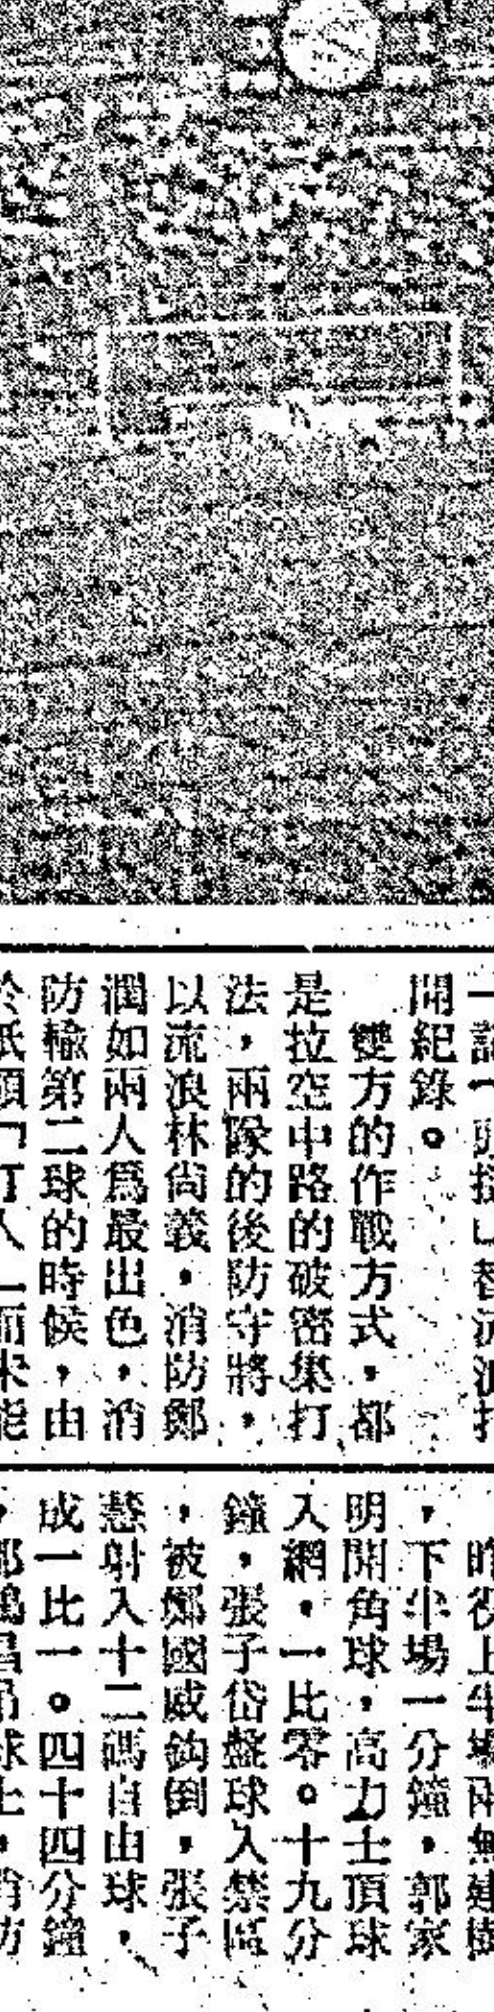 一記「頭搥」替流浪打
開紀錄。
雙方的作戰方式,都
是拉空中路的破密集打
法,兩隊的後防守將,
以流浪林尙義,消防鄭
潤如兩人爲最出色,消
防輸第二球的時候,由
於祇顧「打人」而未能
昨役上半場兩無建樹
,下半場一分鐘,郭家
明開角球,高力士頂球
入網,一比零。十九分
鐘,張子岱盤球入禁區
,被鄭國威鈎倒,張子
慧射入十二碼自由球,
成一比一。四十四分鐘
,鴻昌吊球上,消防